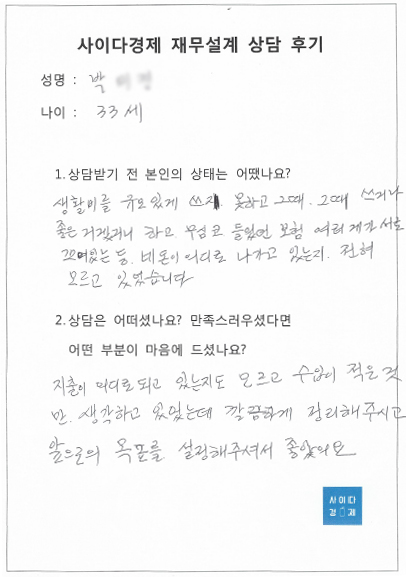 사이다경제 재무설계 상담 후기
성명 : 박
나이 : 33세
1.상담받기 전 본인의 상태는 어땠나요?
생활비를 규모있게 쓰지 못하고 그때. 그때 쓰거나
좋은 거겠거니 하고 무심코 들었던 보험 여러개가 서로
있는 등. 내 돈이 어디로 나가고 있는지. 전혀
모르고 있었습니다
2.상담은 어떠셨나요? 만족스러우셨다면
어떤 부분이 마음에 드셨나요?
지출이 어디로 되고 있는지도 모르고 수입이 적은 것
만. 생각하고 있었는데 깔끔하게 정리해주시고
앞으로의 목표를 설정해주셔서 좋았어요
사이다
경제